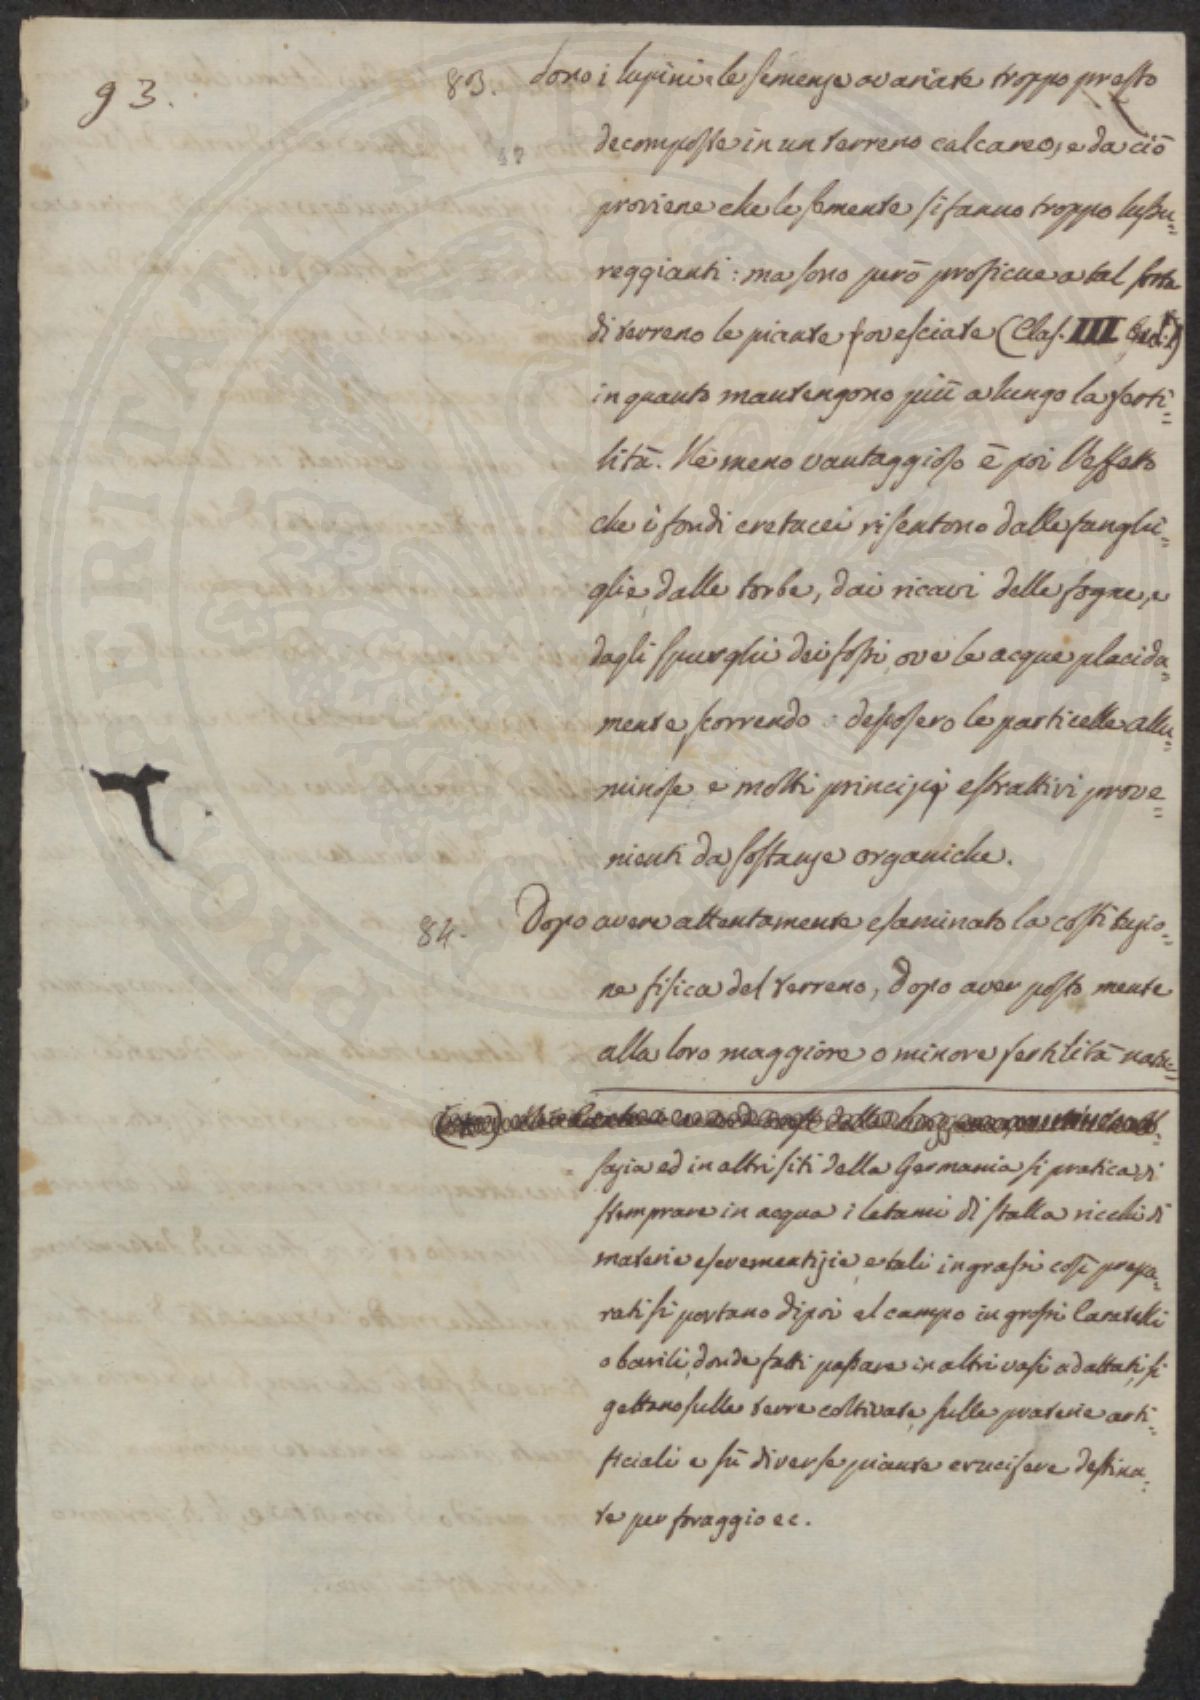 93.
83. Sono i lupini e le semenze avariate troppo presto
decomposte in un terreno calcareo, e da ciò
proviene che le semente si fanno troppo lussu=
reggianti: ma sono però proficue a tal sorta
di terreno le piante sovesciate (Clas. III
in quanto mantengono più a lungo la ferti=
lità. Né meno vantaggioso è poi l'effetto
che i fondi cretacei risentono dalle fanghi=
glie, dalle torbe, dai ricavi delle fogne, e
dagli spurghi dei fossi, ove le acque placida=
mente scorrendo deposero le particelle allu=
minose e molti principj estrattivi prove=
nienti da sostanze organiche.
84. Dopo avere attentamente esaminato la costituzio=
ne fisica del terreno, dopo aver posto mente
alla loro maggiore o minore fertilità natu=
ed in altri siti della Germania si pratica di
stemprare in acqua i letami di stalla ricchi di
materie escrementizie, e tali ingrassi così prepa=
rati si portano dipoi al campo in grossi Caratelli
o barili, donde fatti passare in altri vasi adattati, si
gettano sulle terre coltivate, sulle praterie arti=
ficiali e sù diverse piante crucifere destina=
te per foraggio ec.
PROSPERITATI PUBLICAE